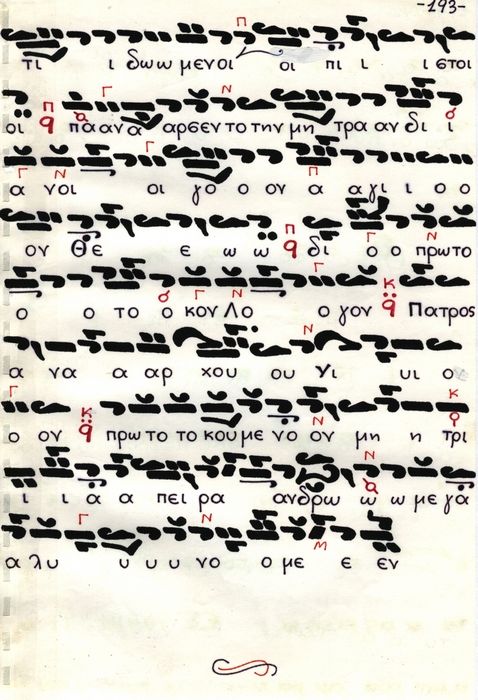 -193-
τι ι δωω μενοι οι πι ι ι ετοι
οι πα αν α αρσεν το την μη τρα αν δι ι
α νοι οι γο ο ον α α γι ι ο ο
ον Θε ε ω ω δι ο ο πρωτο
ο ο το ο κον Λο ο γον Πατρος
α να α αρ χου ου Υι υι ο
ο ον πρω το το κου με νο ον μη η τρι
ι ι α α πει ρα ανδρω ω ω με γα
α λυ υ υ υ νο ο με ε εν